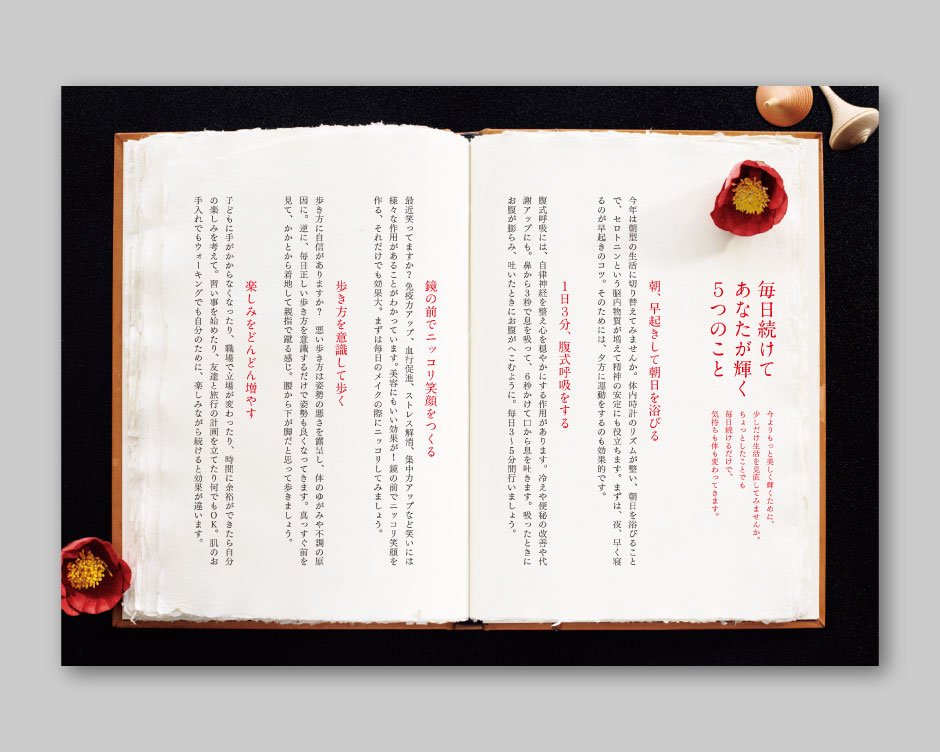 毎日続けて
あなたが輝く
５つのこと
今よりもっと美しく輝くために、
少しだけ生活を見直してみませんか。
ちょっとしたことでも
毎日続けるだけで、
気持ちも体も変わってきます。
朝、早起きして朝日を浴びる
今年は朝型の生活に切り替えてみませんか。体内時計のリズムが整い、朝日を浴びること
で、セロトニンという脳内物質が増えて精神の安定にも役立ちます。まずは、夜、早く寝
るのが早起きのコツ。そのためには、夕方に運動をするのも効果的です。
１日３分、腹式呼吸をする
腹式呼吸には、自律神経を整え心を穏やかにする作用があります。冷えや便秘の改善や代
謝アップにも。鼻から３秒で息を吸って、６秒かけて口から息を吐きます。吸ったときに
お腹が膨らみ、吐いたときにお腹がへこむように。毎日３～５分間行いましょう。
鏡の前でニッコリ笑顔をつくる
最近笑ってますか？免疫力アップ、血行促進、ストレス解消、集中力アップなど笑いには
様々な作用があることがわかっています。美容にもいい効果が！鏡の前でニッコリ笑顔を
作る、それだけでも効果大。まずは毎日のメイクの際にニッコリしてみましょう。
歩き方を意識して歩く
歩き方に自信がありますか？　悪い歩き方は姿勢の悪さを露呈し、体のゆがみや不調の原
因に。逆に、毎日正しい歩き方を意識するだけで姿勢も良くなってきます。真っすぐ前を
見て、かかとから着地して親指で蹴る感じ。腰から下が脚だと思って歩きましょう。
楽しみをどんどん増やす
子どもに手がかからなくなったり、職場で立場が変わったり、時間に余裕ができたら自分
の楽しみを考えて。習い事を始めたり、友達と旅行の計画を立てたり何でもOK。肌のお
手入れでもウォーキングでも自分のために、楽しみながら続けると効果が違います。